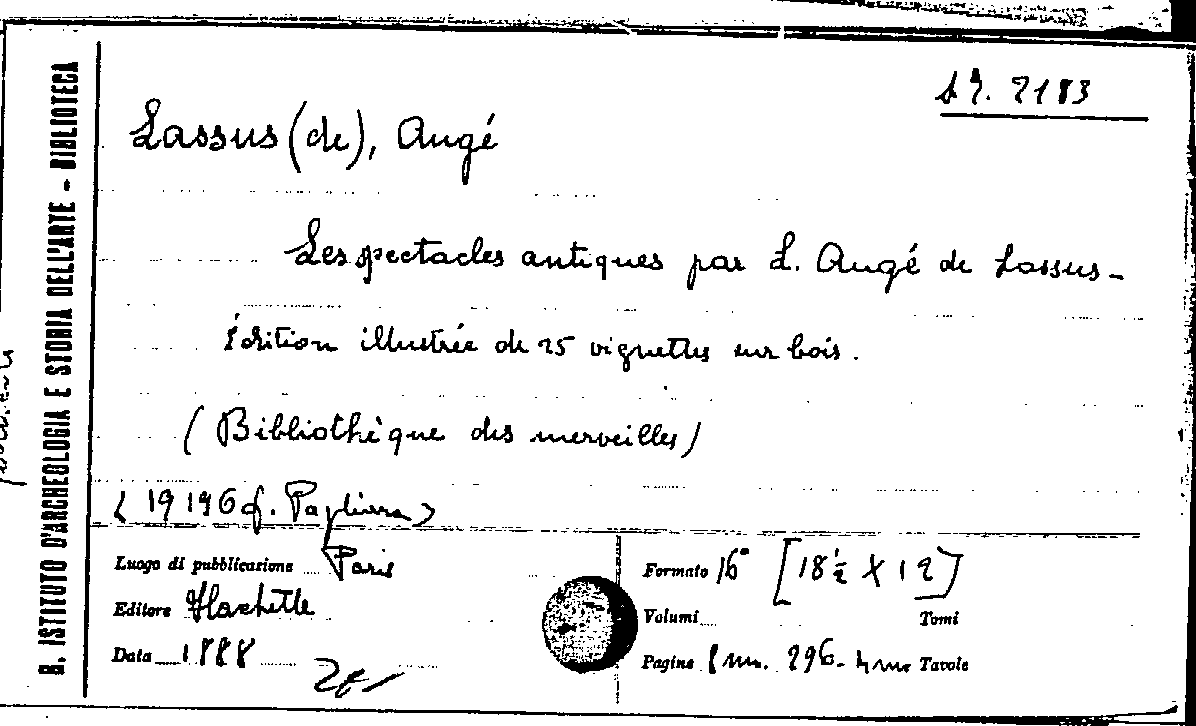 R. ISTITUTO D'ARCHEOLOGIA E STORIA DELL'ARTE - BIBLIOTECA
Lassus (de), Augé
Les spectacles antiques par L. Augé de Lassus -
Édition illustrée de 25 vignettes sur bois.
(Bibliothèque des merveilles)
(19196 f. Pagliara)
Luogo di pubblicazione Paris
Editore Hachette
Data 1888
Formato 16° [18 ½ X 12]
Volumi Tomi
Pagine 296- Tavole